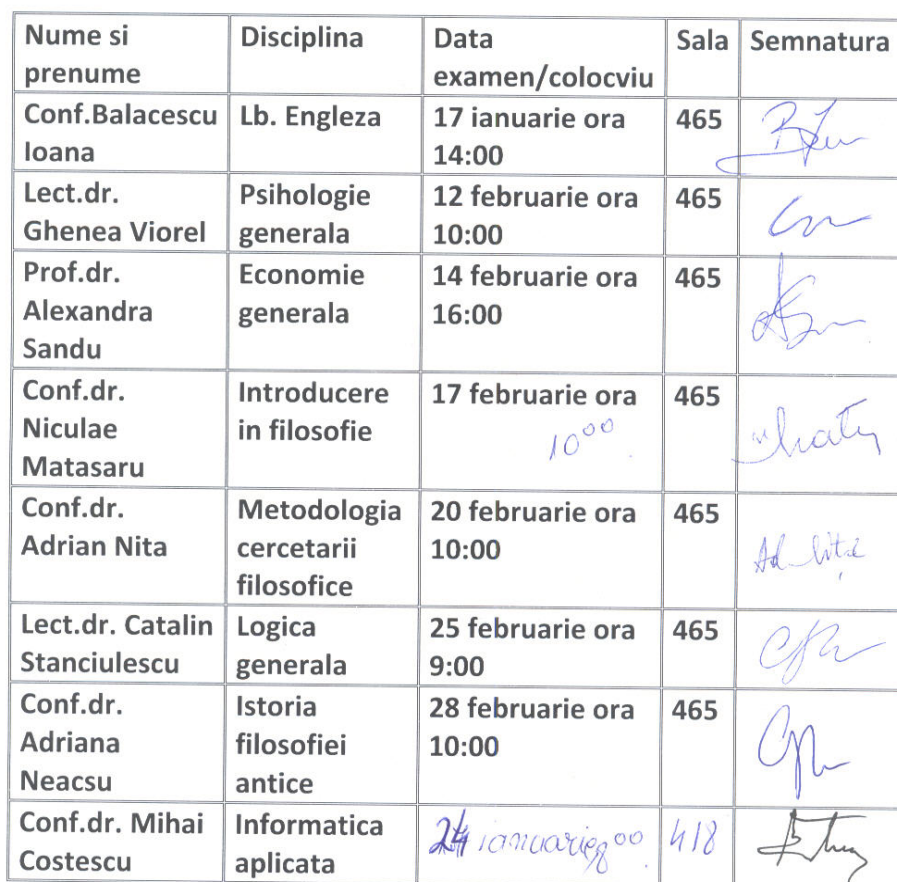 Nume si prenume Disciplina Data examen/colocviu Sala Semnatura
Conf.Balacescu Ioana Lb. Engleza 17 ianuarie ora 14:00 465
Lect.dr. Ghenea Viorel Psihologie generala 12 februarie ora 10:00 465
Prof.dr. Alexandra Sandu Economie generala 14 februarie ora 16:00 465
Conf.dr. Niculae Matasaru Introducere in filosofie 17 februarie ora 10⁰⁰ 465
Conf.dr. Adrian Nita Metodologia cercetarii filosofice 20 februarie ora 10:00 465
Lect.dr. Catalin Stanciulescu Logica generala 25 februarie ora 9:00 465
Conf.dr. Adriana Neacsu Istoria filosofiei antice 28 februarie ora 10:00 465
Conf.dr. Mihai Costescu Informatica aplicata 24 ianuarie 8⁰⁰ 418